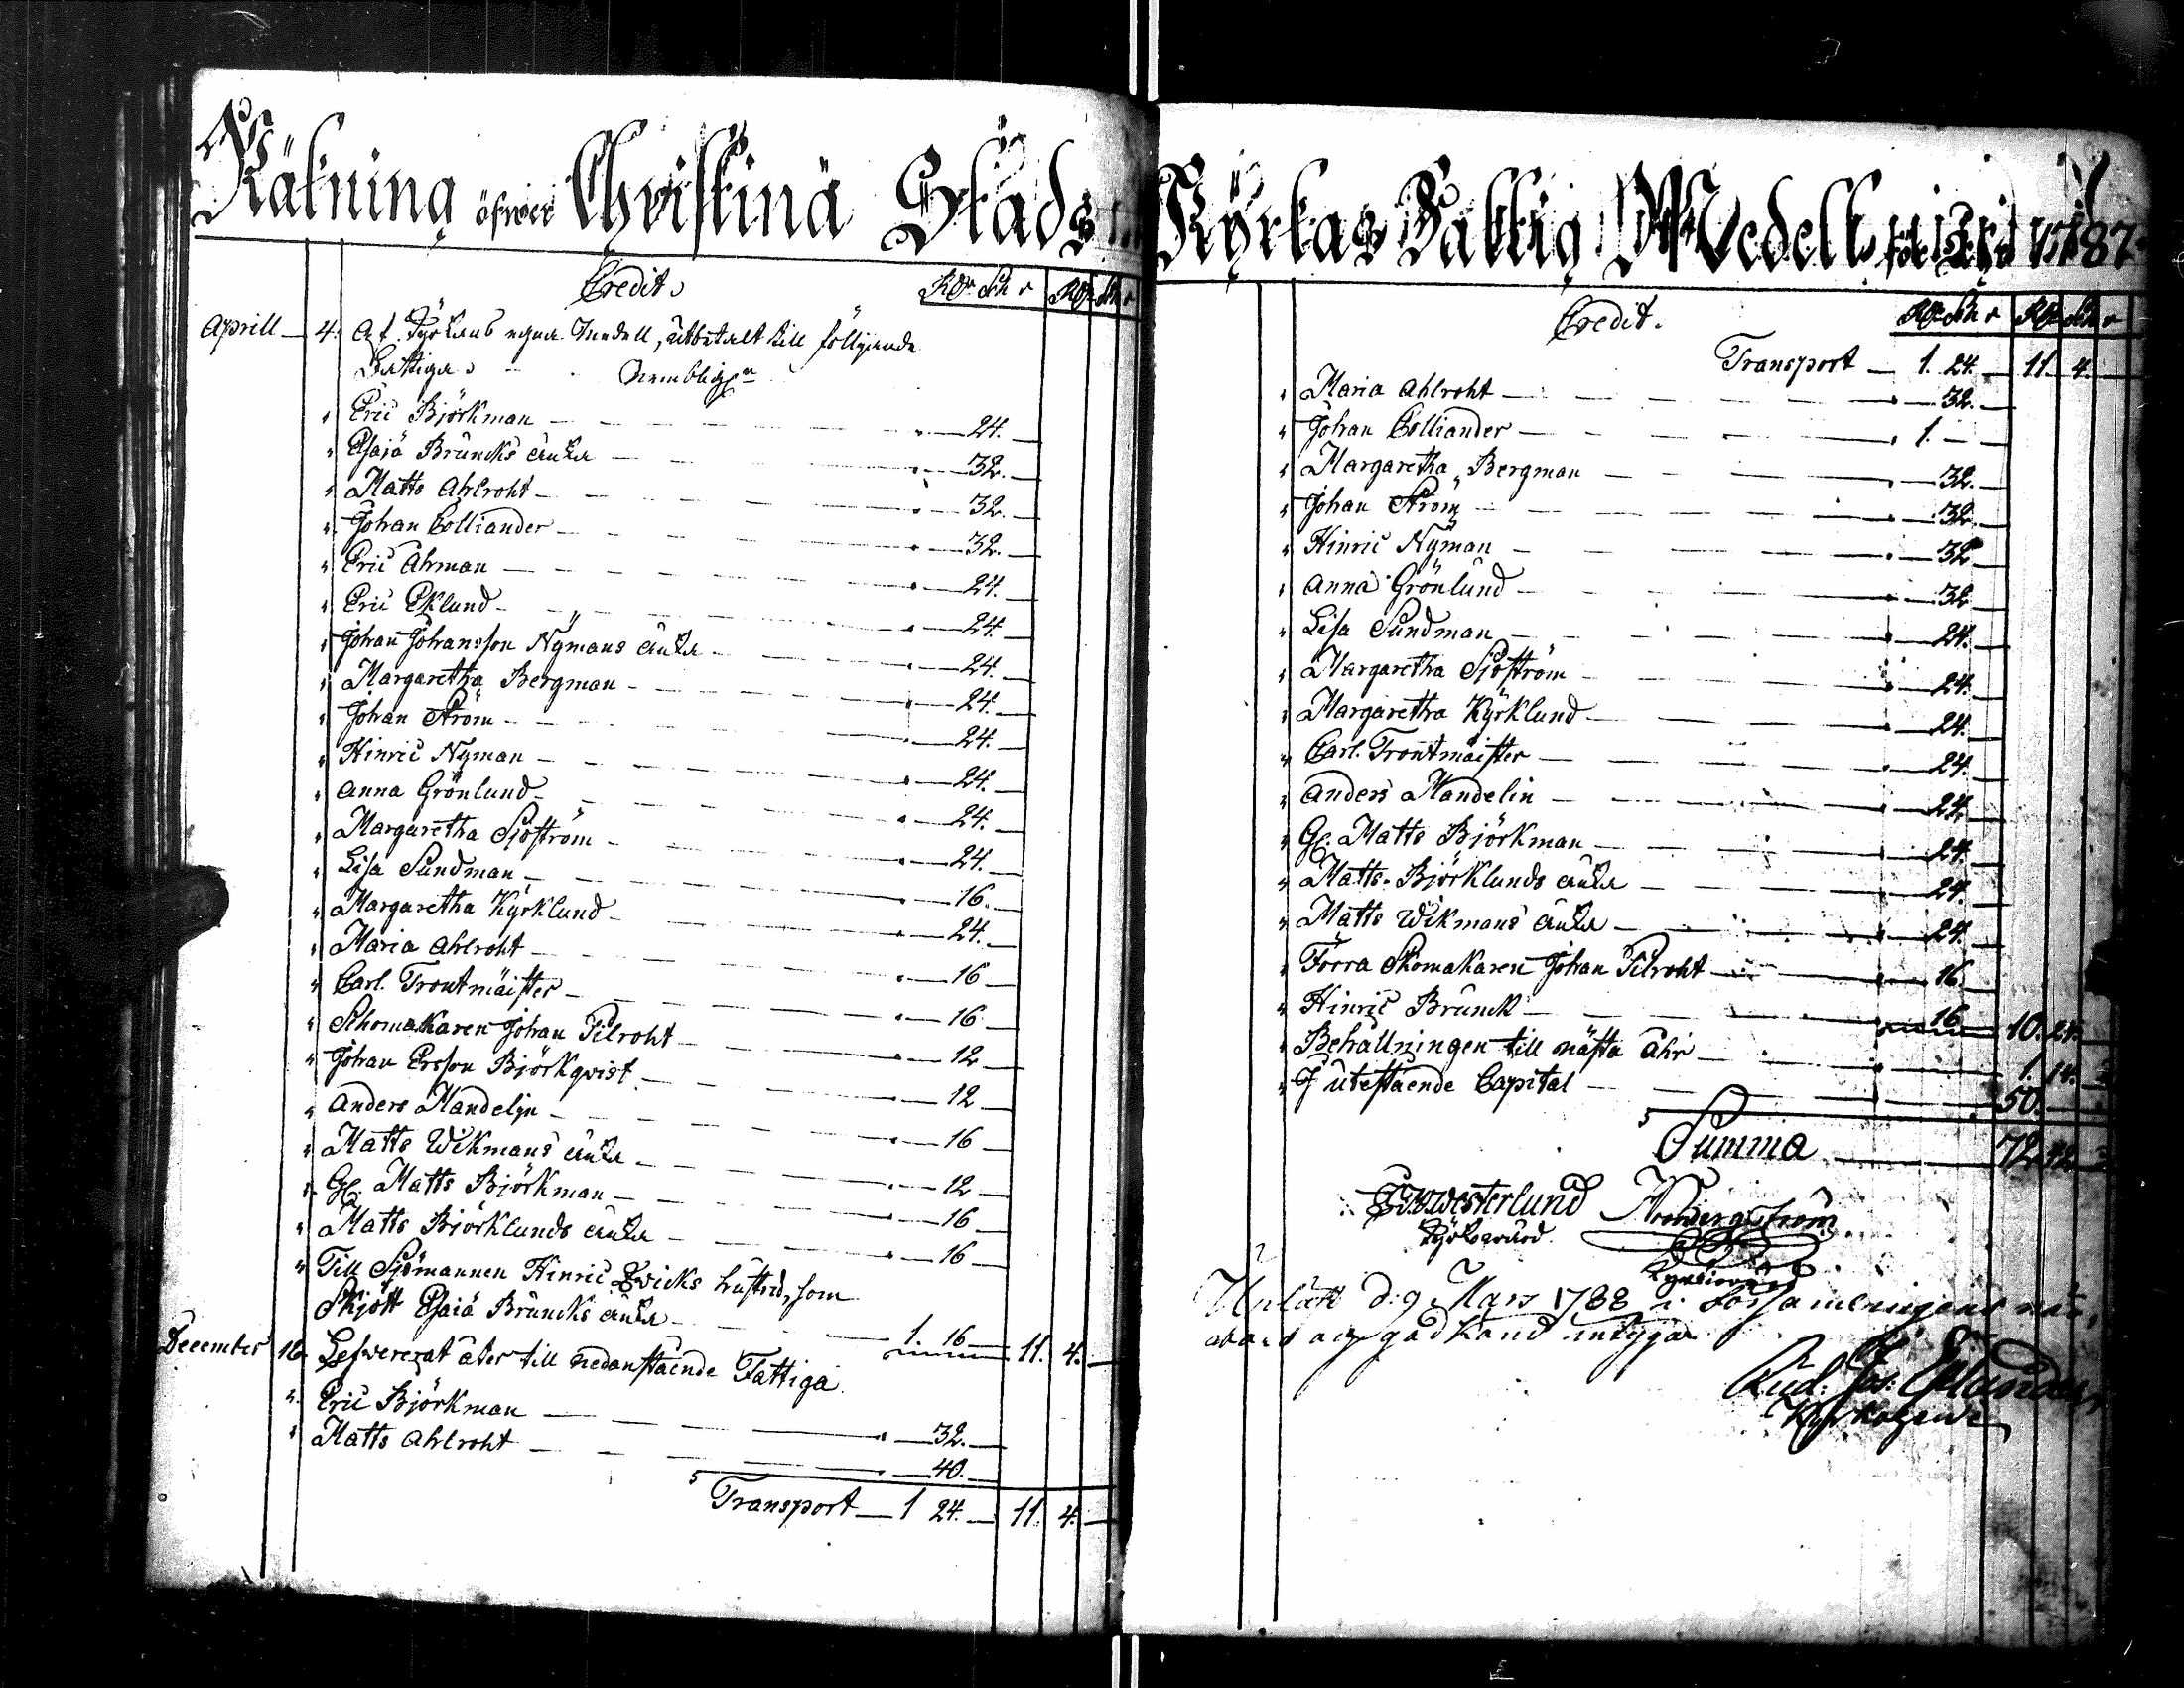 Räkning öfwer Christinä Stads
Credit. Rdr Sch r Rdr Sch r
Aprill 4. Af Kyrkans egna medell, utbetalt till föllgiande
Fattiga Nembligen
" Eric Björkman 24.
" Esaiä Bruncks änka 32.
" Matts Ahlroht 32.
" Johan Colliander 32.
" Eric Ahman 24.
" Eric Eklund 24.
" Johan Johansson Nÿmans änka 24.
" Margaretha Bergman 24.
" Johan Ström 24.
" Hinric Nÿman 24.
" Anna Grönlund 24.
" Margaretha Sjöström 24.
" Lisa Sundman 16.
" Margaretha Kÿrklund 24.
" Maria Ahlroht 16
" Carl Trontmäister 16.
" Skomakaren Johan Pilroht 12
" Johan Ersson Björkqvist 12
" Anders Mandelin 16
" Matts Wikmans änka 12
" Gl. Matts Björkman 16
" Matts Björklunds änka 16
" Till Sjömannen Hinric Qvicks hustru, som
Skjött Esaiä Bruncks änka 1. 16 11. 4.
December 16 Lefwererat åter till nedanstående Fattiga
" Eric Björkman 32.
" Matts Ahlroht 40.
Transport 1 24. 11. 4.
Kÿrkas Fattig Medell för åhr 1787.
Credit. Rdr Sch r Rdr Sch r
Transport 1. 24. 11. 4.
" Maria Ahlroht 32.
" Johan Colliander 1.
" Margaretha Bergman 32.
" Johan Ström 32.
" Hinric Nÿman 32
" Anna Grönlund 32
" Lisa Sundman 24.
" Margaretha Sjöström 24.
" Margaretha Kÿrklund 24.
" Carl Trontmäister 24.
" Anders Mandelin 24.
" Gl. Matts Björkman 24.
" Matts Björklunds änka 24.
" Matts Wikmans änka 24.
" Förra Skomakaren Johan Pilroht 16.
" Hinric Brunck 16 10. 24.
" Behållningen till nästa åhr 1. 14.
" I uteståënde Capital 50.
Summa 72. 42.
Westerlund
Kÿrkowärd
Kyrkiowärd
Upläst d. 9 Mars 1788 i församlingens när,
waro och godkänd intygar
Kyrkoherde